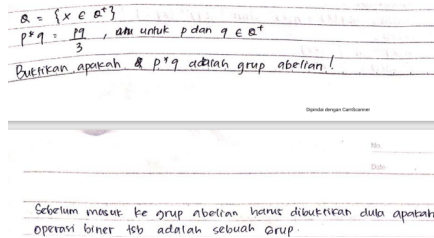 Q = {x ∈ Q⁺}
p*q = pq/3 , untuk p dan q ∈ Q⁺
Buktikan apakah p*q adalah grup abelian!
Dipindai dengan CamScanner
No
Date
Sebelum masuk ke grup abelian harus dibuktikan dulu apakah
operasi biner tsb adalah sebuah Grup.